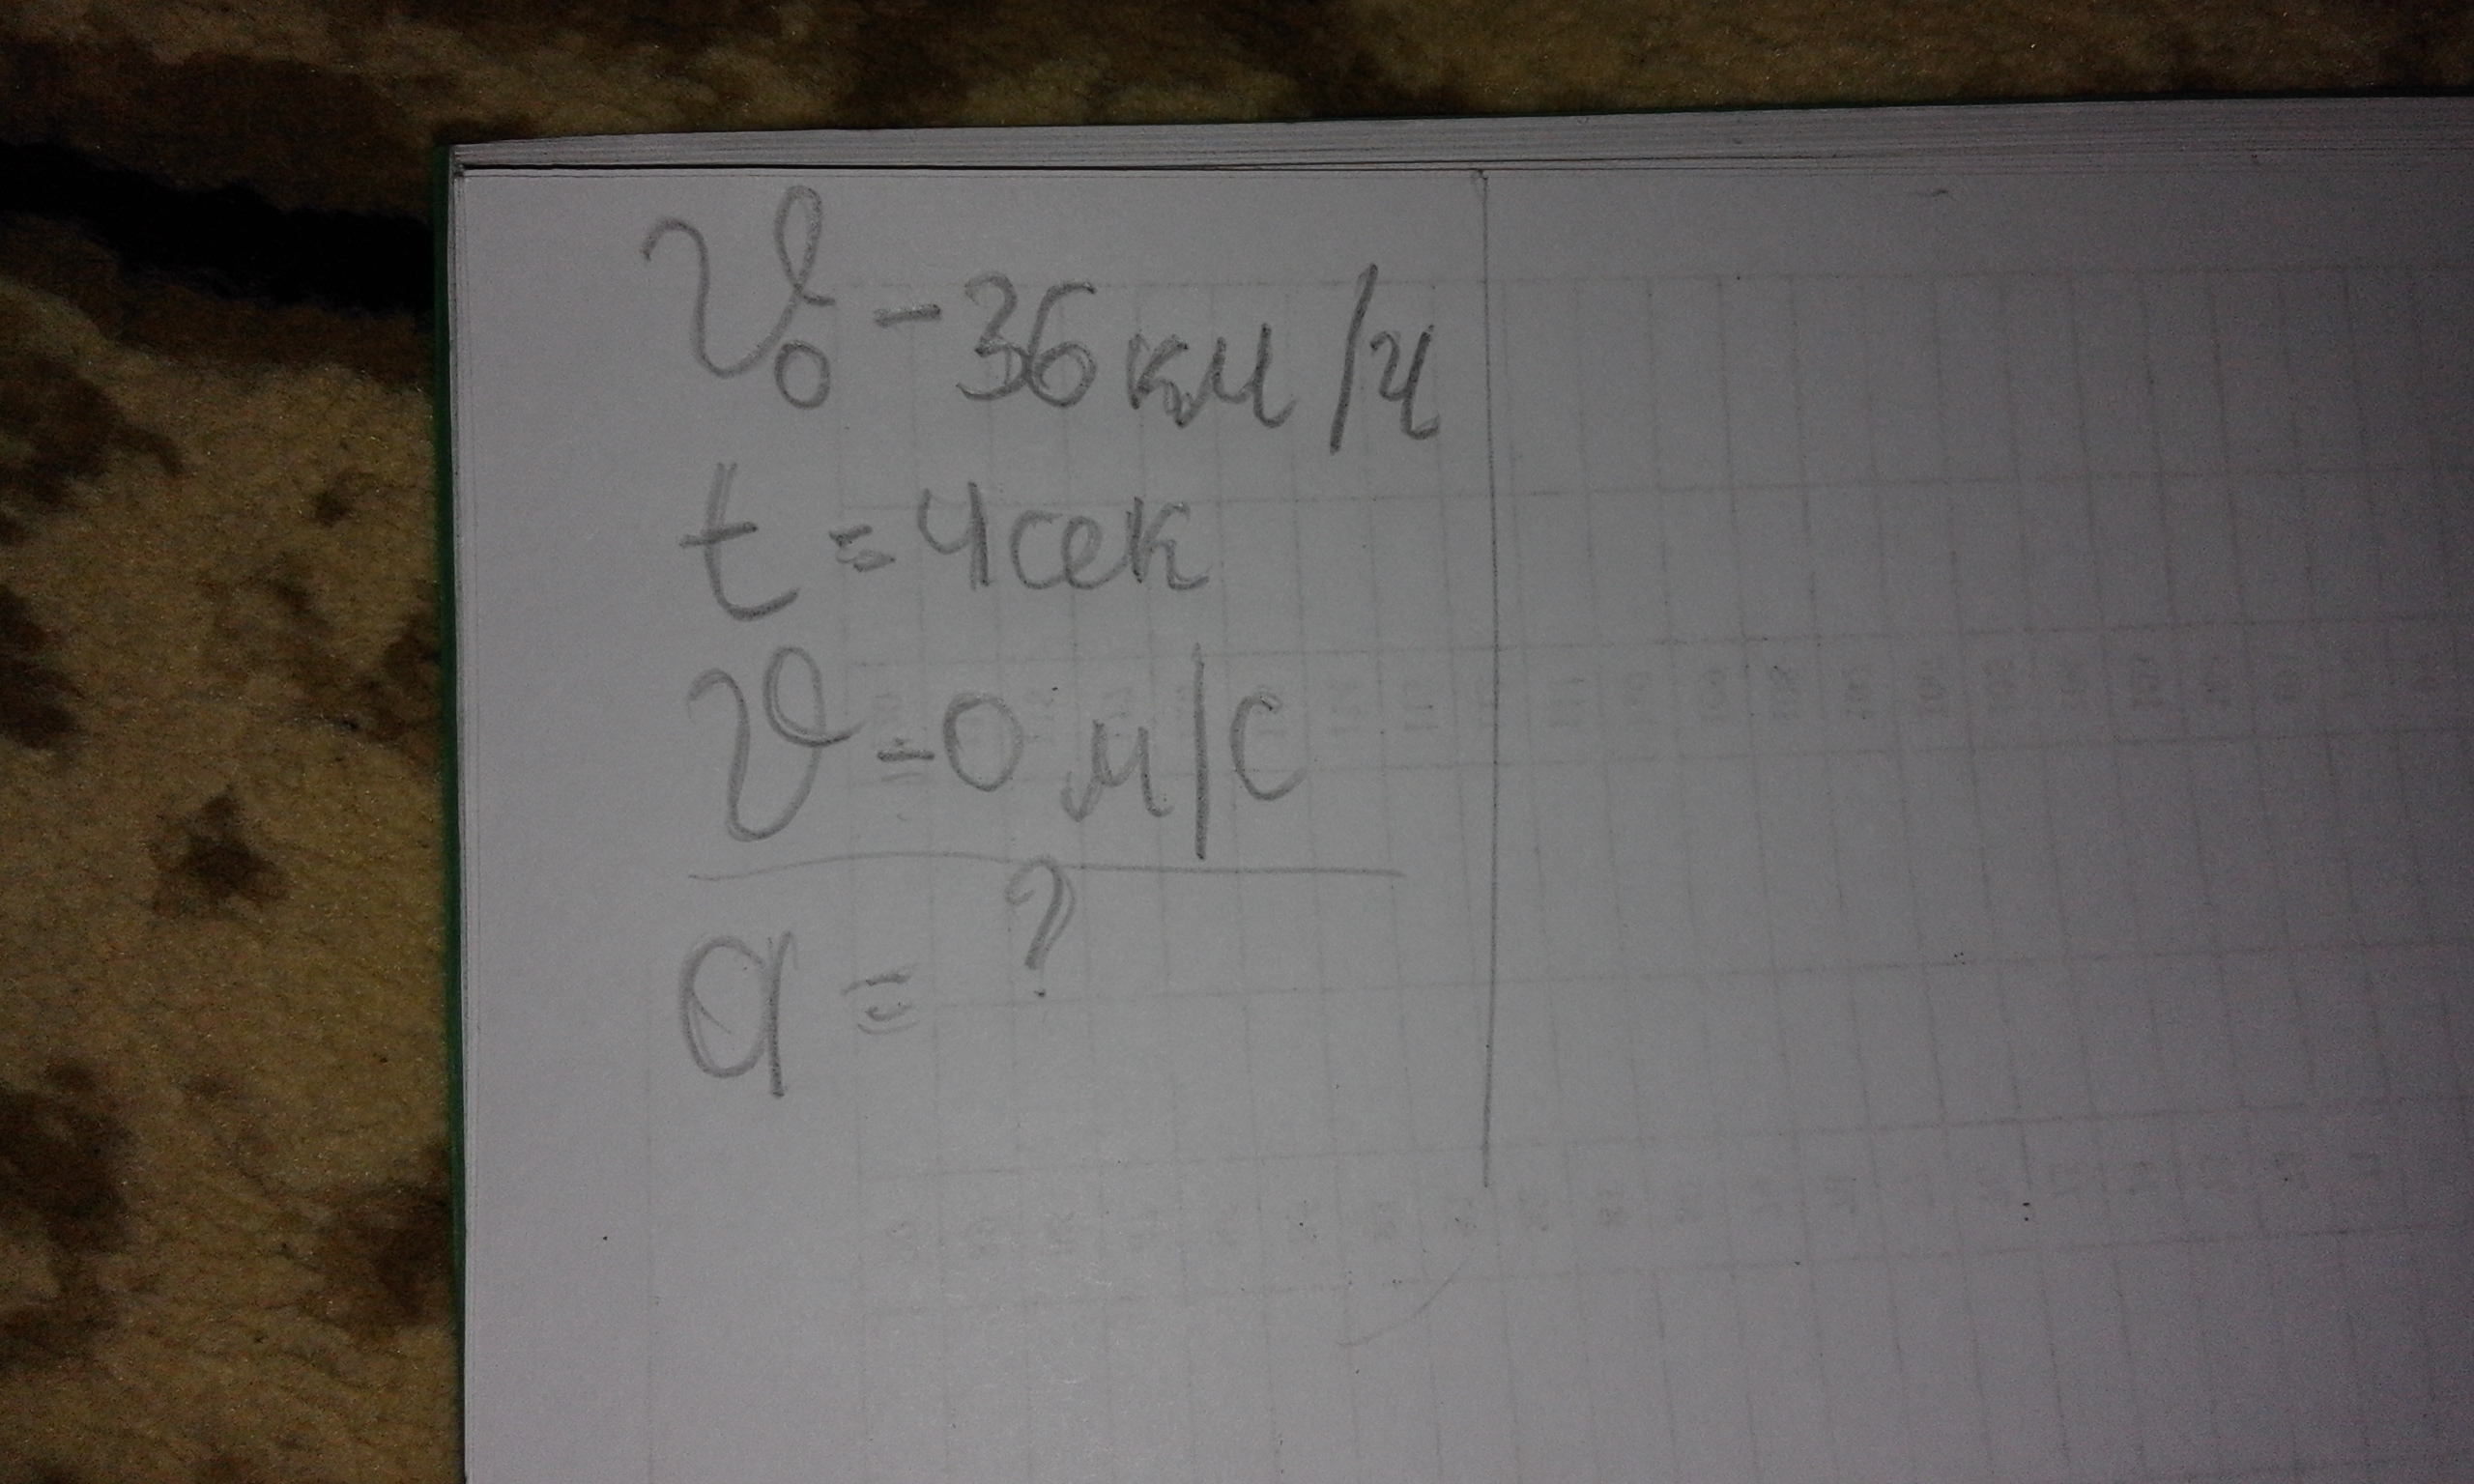 υ₀ - 36 км/ч
t = 4 сек
υ = 0 м/с
a = ?